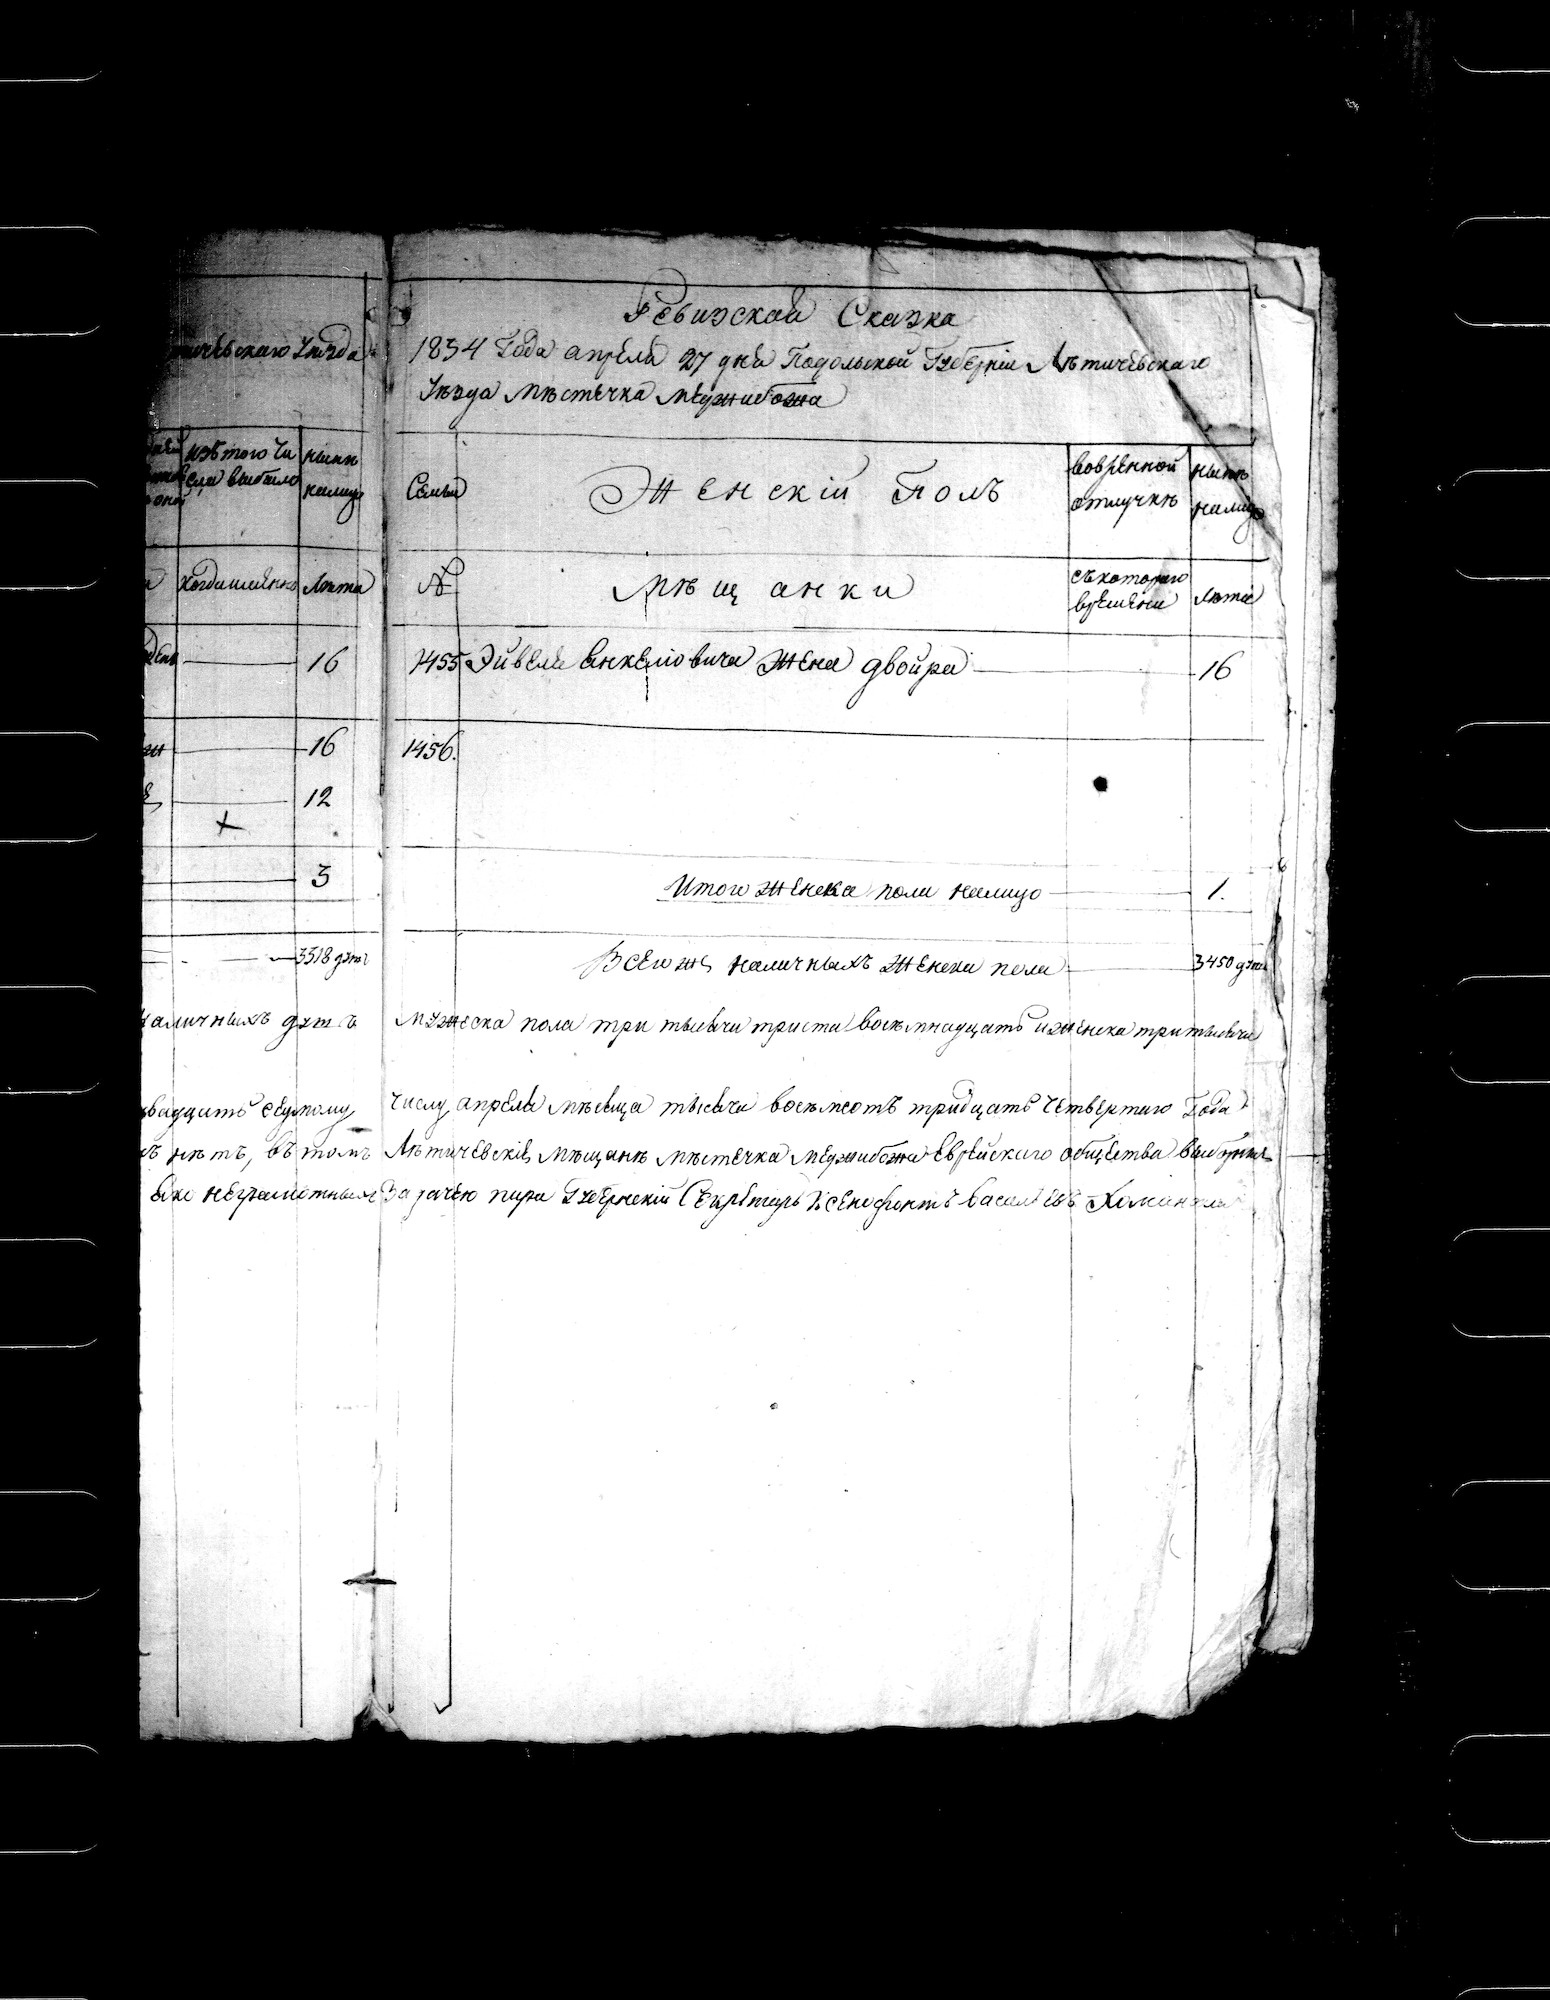 Уезда
изъ того чи
сла выбыло
нынѣ
налицо
когда именно
Лѣта
16
16
12
3
3318 дути
наличныхъ душъ
двадцать седмому
нѣтъ, въ томъ
неграмотныхъ
Ревизская Сказка
1834 Года апреля 27 дня Подольской Губерніи Лѣтичевскаго
Уѣзда Мѣстечка Меджибожа
Семьи
Женскій Полъ
вовременной
отлучкѣ
нынѣ
налицо
№
Мѣщанки
съ котораго
времени
Лѣта
1455 Эйвеля Янкелiовича Жена Двойра 16
1456.
Итого Женска пола налицо 1.
Всего же наличныхъ Женска пола 3450
Мужеска пола три тысячи триста восѣмнадцать и женска три тысячи
числу апреля мѣсяца тысяча восѣмсотъ тридцать четвертаго Года
Лѣтичевскіе мѣщане мѣстечка Меджибожа Еврейскаго общества
Губернскій Секретарь Ксенофонтъ Васильевъ